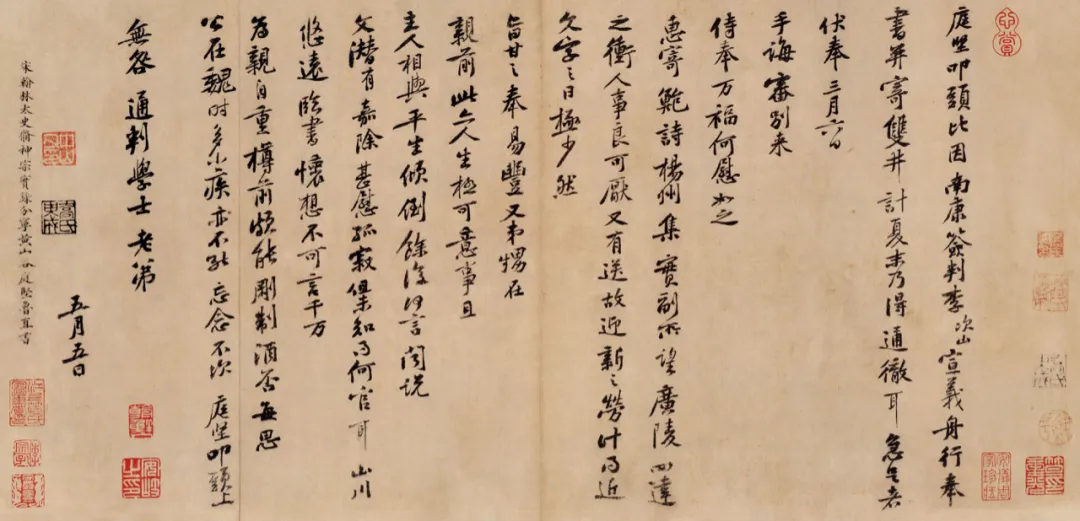 庭堅叩頭比因南康簽判李次山宣義舟行奉
書并寄雙井計夏末乃得通徹耳急足者
伏奉三月六日
手誨審別来
侍奉万福何慰如之
惠寄鮑詩楊州集實副所望廣陵四達
之衝人事良可厭又有送故迎新之勞計得近
文字之日極少然
旨甘之奉易豐又弟甥在
親前此亦人生極可意事且
主人相與平生傾倒餘復何言聞說
文潛有嘉除甚慰孤寂知得何官耳山川
悠遠臨書懷想不可言千万
為親自重樽前頗能剛制酒否每思
公在魏時多小疾亦不能忘念不次 庭堅叩頭上
無咎通判學士老弟
五月五日
宋翰林太史脩神宗實録分寧黃山谷庭堅魯直書